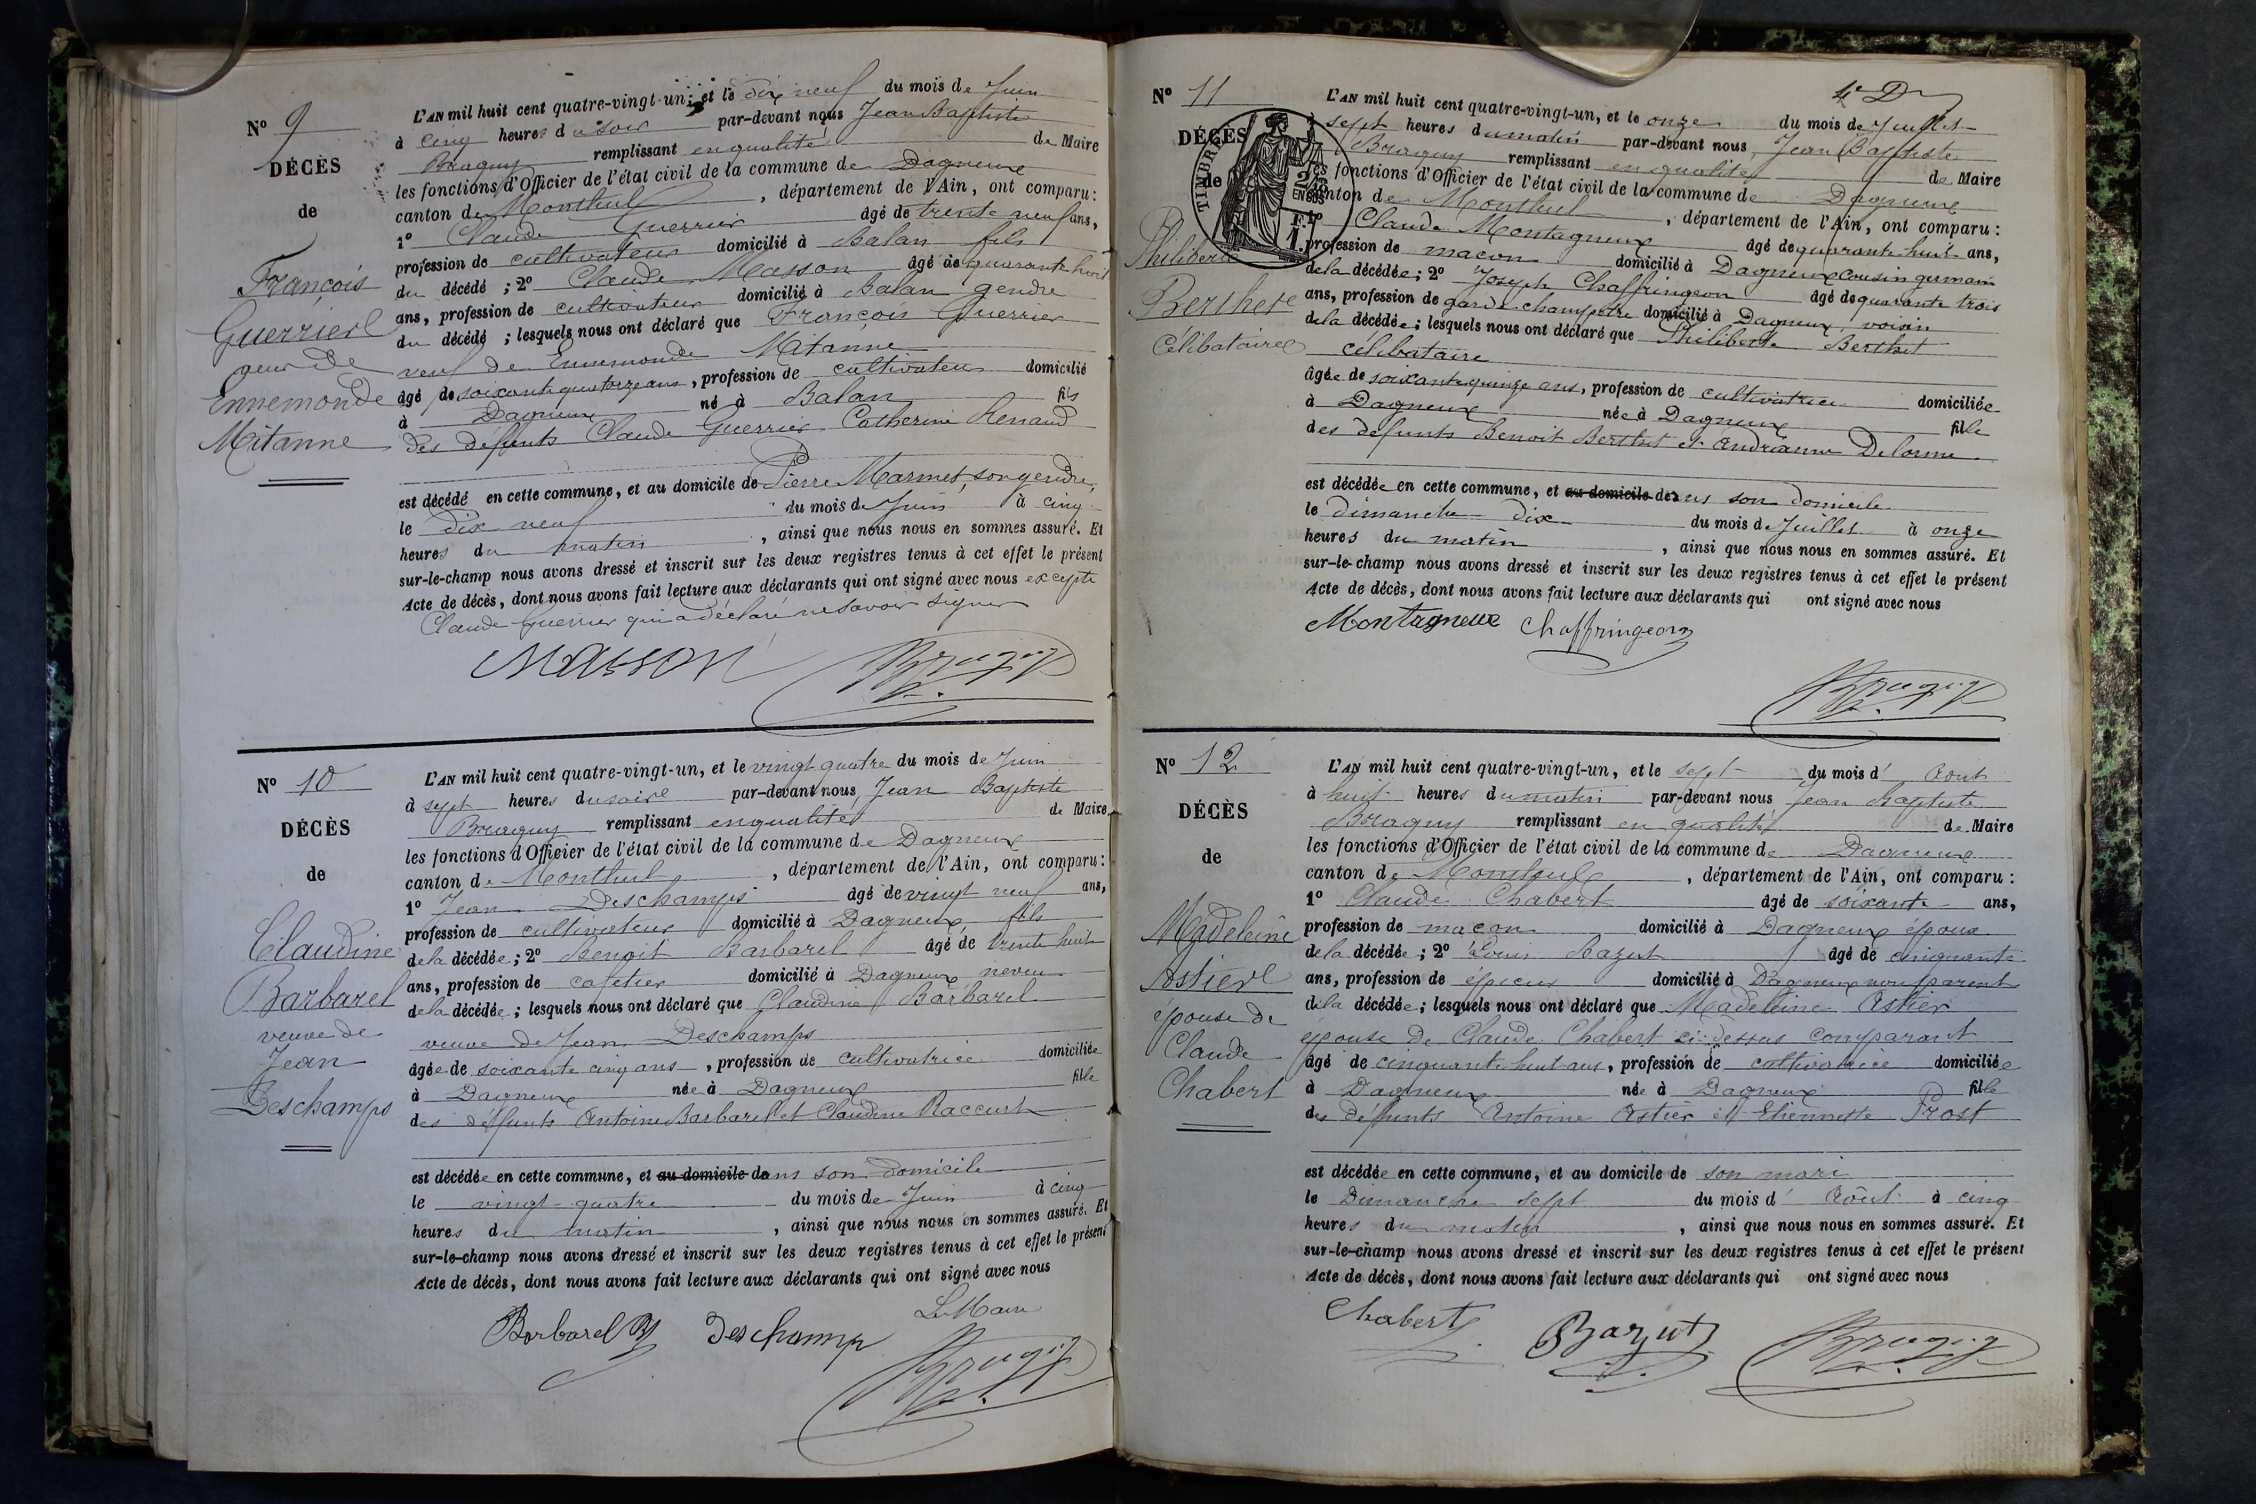 N° 9
DÉCÈS
de
François
Guerrier
veuf de
Ennemonde
Mitanne
L'AN mil huit cent quatre-vingt-un, et le dix neuf du mois de Juin
à cinq heures du soir par-devant nous Jean Baptiste
Bruguy remplissant en qualité de Maire
les fonctions d'Officier de l'état civil de la commune de Dagneux
canton de Montluel, département de l'Ain, ont comparu :
1° Claude Guerrier âgé de trente neuf ans,
profession de cultivateur domicilié à Balan fils
du décédé ; 2° Claude Masson âgé de quarante huit
ans, profession de cultivateur domicilié à Balan gendre
du décédé ; lesquels nous ont déclaré que François Guerrier
veuf de Ennemonde Mitanne
âgé de soixante quatorze ans, profession de cultivateur domicilié
à Dagneux né à Balan fils
des défunts Claude Guerrier Catherine Renaud
est décédé en cette commune, et au domicile de Pierre Marmet, son gendre,
le dix neuf du mois de Juin à cinq
heures du matin, ainsi que nous nous en sommes assuré. Et
sur-le-champ nous avons dressé et inscrit sur les deux registres tenus à cet effet le présent
Acte de décès, dont nous avons fait lecture aux déclarants qui ont signé avec nous excepté
Claude Guerrier qui a déclaré ne savoir signer
MASSON
N° 10
DÉCÈS
de
Claudine
Barbarel
veuve de
Jean
Deschamps
L'AN mil huit cent quatre-vingt-un, et le vingt quatre du mois de Juin
à sept heures du soire par-devant nous Jean Baptiste
Bruguy remplissant en qualité de Maire
les fonctions d'Officier de l'état civil de la commune de Dagneux
canton de Montluel, département de l'Ain, ont comparu :
1° Jean Deschamps âgé de vingt neuf ans,
profession de cultivateur domicilié à Dagneux fils
de la décédée ; 2° Benoit Barbarel âgé de trente huit
ans, profession de cafetier domicilié à Dagneux neveu
de la décédée ; lesquels nous ont déclaré que Claudine Barbarel
veuve de Jean Deschamps
âgée de soixante cinq ans, profession de cultivatrice domiciliée
à Dagneux née à Dagneux fille
des défunts Antoine Barbarel et Claudine Raccurt
est décédée en cette commune, et au domicile dans son domicile
le vingt-quatre du mois de Juin à cinq
heures du matin, ainsi que nous nous en sommes assuré. Et
sur-le-champ nous avons dressé et inscrit sur les deux registres tenus à cet effet le présent
Acte de décès, dont nous avons fait lecture aux déclarants qui ont signé avec nous
Le Maire
Barbarel Deschamp
4e D
N° 11
DÉCÈS
de
Philiberte
Berthet
Célibataire
TIMBRE
EN SUS
L'AN mil huit cent quatre-vingt-un, et le onze du mois de Juillet
à sept heures du matin par-devant nous Jean Baptiste
Bruguy remplissant en qualité de Maire
les fonctions d'Officier de l'état civil de la commune de Dagneux
canton de Montluel, département de l'Ain, ont comparu :
1° Claude Montagneux âgé de quarante-huit ans,
profession de maçon domicilié à Dagneux cousin germain
de la décédée ; 2° Joseph Chaffringeon âgé de quarante trois
ans, profession de garde-champetre domicilié à Dagneux voisin
de la décédée ; lesquels nous ont déclaré que Philiberte Berthet
célibataire
âgée de soixante quinze ans, profession de cultivatrice domiciliée
à Dagneux née à Dagneux fille
des défunts Benoit Berthet et Andréanne Delorme
est décédée en cette commune, et au domicile dans son domicile
le dimanche dix du mois de Juillet à onze
heures du matin, ainsi que nous nous en sommes assuré. Et
sur-le-champ nous avons dressé et inscrit sur les deux registres tenus à cet effet le présent
Acte de décès, dont nous avons fait lecture aux déclarants qui ont signé avec nous
Montagneux Chaffringeon
N° 12
DÉCÈS
de
Madeleine
Astier
épouse de
Claude
Chabert
L'AN mil huit cent quatre-vingt-un, et le sept du mois d'Aout
à huit heures du matin par-devant nous Jean Baptiste
Bruguy remplissant en qualité de Maire
les fonctions d'Officier de l'état civil de la commune de Dagneux
canton de Montluel, département de l'Ain, ont comparu :
1° Claude Chabert âgé de soixante ans,
profession de maçon domicilié à Dagneux époux
de la décédée ; 2° Louis Bazut âgé de cinquante
ans, profession de épicier domicilié à Dagneux non parent
de la décédée ; lesquels nous ont déclaré que Madeleine Astier
epouse de Claude Chabert ci-dessus comparant
âgé de cinquante huit ans, profession de cultivatrice domiciliée
à Dagneux née à Dagneux fille
des defunts Antoine Astier et Etiennette Prost
est décédée en cette commune, et au domicile de son mari
le Dimanche sept du mois d'Aôut à cinq
heures du matin, ainsi que nous nous en sommes assuré. Et
sur-le-champ nous avons dressé et inscrit sur les deux registres tenus à cet effet le présent
Acte de décès, dont nous avons fait lecture aux déclarants qui ont signé avec nous
Chabert Bazut